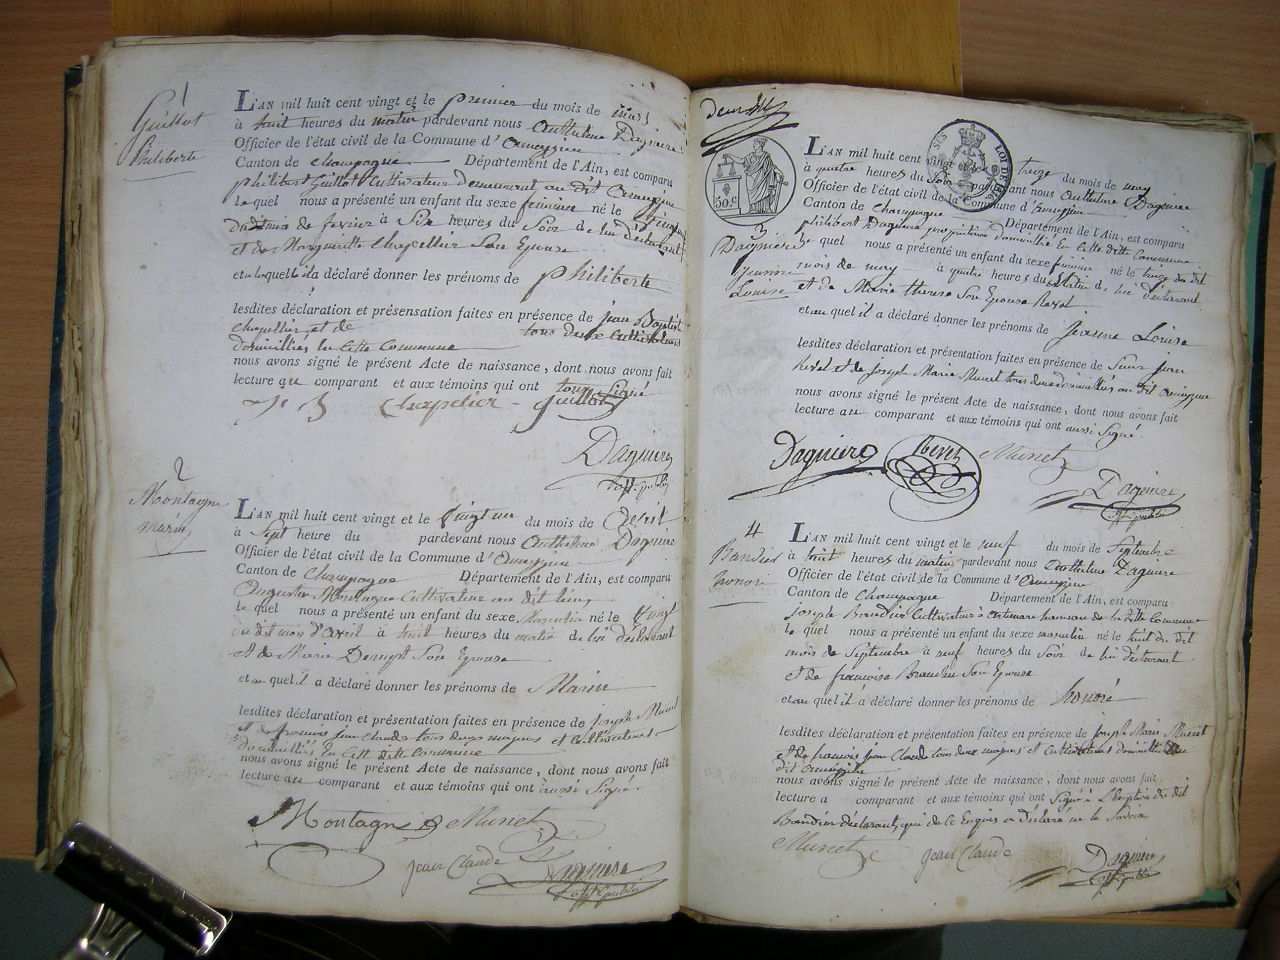 1
Guillot
Philiberte
L'AN mil huit cent vingt et le premier du mois de mars
à huit heures du matin pardevant nous Anthelme Daguiere
Officier de l'état civil de la Commune d'Ameyzieu
Canton de Champagne Département de l'Ain, est comparu
philibert Guillot Cultivateur demeurant au dit Ameyzieu
le quel nous a présenté un enfant du sexe féminin né le
du mois de fevrier à Six heures du Soir de lui déclarant
et de Marguerite Chapellier Son Epouse
et a déclaré donner les prénoms de Philiberte
lesdites déclaration et présensation faites en présence de jean Baptiste
Chapellier et de tous deux Cultivateurs
domiciliés en Cette Commune
nous avons signé le présent Acte de naissance, dont nous avons fait
lecture au comparant et aux témoins qui ont tous Signé
Chapelier Guillot
Daguiere
off. public
2
Montagne
marin
L'AN mil huit cent vingt et le vingt un du mois de Avril
à Sept heure du pardevant nous Anthelme Daguiere
Officier de l'état civil de la Commune d'Ameyzieu
Canton de Champagne Département de l'Ain, est comparu
Augustin Montagne Cultivateur au dit lieu
le quel nous a présenté un enfant du sexe Masculin né le vingt
du dit mois d'Avril à huit heures du matin de lui déclarant
et de Marie Son Epouse
et au quel il a déclaré donner les prénoms de Marin
lesdites déclaration et présentation faites en présence de joseph Munet
et de francois jean Claude tous deux majeurs et Cultivateurs
domiciliés en Cette ditte Commune
nous avons signé le présent Acte de naissance, dont nous avons fait
lecture au comparant et aux témoins qui ont aussi Signé.
Montagne Munet
jean Claude Daguiere
off. public
SIS LOI DE 1816
50.c
3
Daguiere
jeanne
Louise
L'AN mil huit cent vingt et le treize du mois de may
à quatre heures du Soir pardevant nous Anthelme Daguiere
Officier de l'état civil de la Commune d'Ameyzieu
Canton de Champagne Département de l'Ain, est comparu
philibert Daguiere propriétaire domicillié En Cette ditte Commune
le quel nous a présenté un enfant du sexe féminin né le treize du dit
mois de may à quatre heures du matin de lui déclarant
et de Marie therese Son Epouse
et au quel il a déclaré donner les prénoms de Jeanne Louise
lesdites déclaration et présentation faites en présence de jean
et de joseph Marie Munet tous deux domiciliés au dit Ameyzieu
nous avons signé le présent Acte de naissance, dont nous avons fait
lecture au comparant et aux témoins qui ont aussi Signé.
Daguiere Munet
Daguiere
off. public
4
Brandier
honoré
L'AN mil huit cent vingt et le neuf du mois de Septembre
à huit heures du matin pardevant nous Anthelme Daguiere
Officier de l'état civil de la Commune d'Ameyzieu
Canton de Champagne Département de l'Ain, est comparu
joseph Brandier Cultivateur à hameau de la ditte Commune
le quel nous a présenté un enfant du sexe masculin né le huit du dit
mois de Septembre à neuf heures du Soir de lui déclarant
et de francoise Son Epouse
et au quel il a déclaré donner les prénoms de honoré
lesdites déclaration et présentation faites en présence de joseph Marie Munet
et de francois jean Claude tous deux majeurs et Cultivateurs domiciliés au
dit Ameyzieu
nous avons signé le présent Acte de naissance, dont nous avons fait
lecture a comparant et aux témoins qui ont Signé à L'exception du dit
Brandier déclarant, qui de Ce Enquis a déclaré ne le Savoir
Munet jean Claude Daguiere
off. public